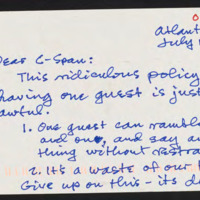 Atlant
July
Dear C-Span:
This ridiculous policy
having one guest is just
awful.
1. One guest can ramble
and on, and say an
thing without restra
2. It's a waste of our
Give up on this - its d